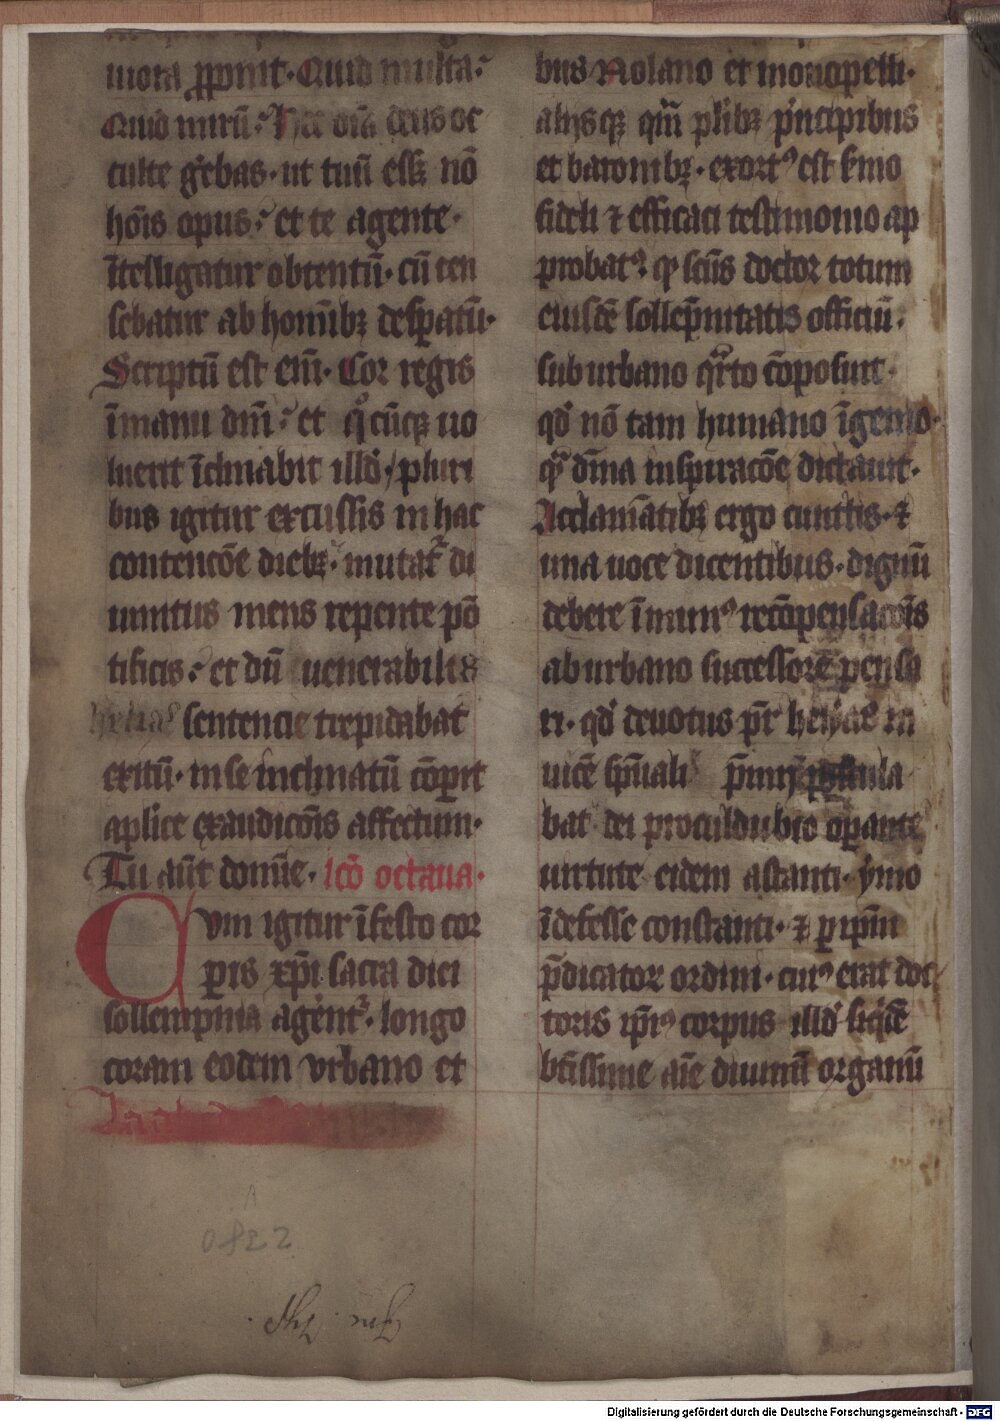 mora ꝓponit· Quid multa?
Quid mirū? Hec oīa deus oc
culte gͥebas· ut tuū esset nō
hōis opus? et te agente·
ītelligatur obtentū· cū cen
sebatur ab homībꝫ despatū·
Scriptū est eīm· Cor regis
ī manu dnī? et qͦcūqꝫ uo
luerit īclinabit illd̓/ pluri
bus igitur excussis in hac
contencōe diebꝫ· mutatᷣ di
uinitus mens repente pō
tificis? et dū uenerabilis
helias sentencie trepidabat
exitū· in se inclinatū cōperit
aplice exaudicōis affectum·
Tu aūt domīe· lcō octaua·
Cvm igitur ī festo cor
ꝑis xp̄i sacra dici
sollempnia agentᷣ· longo
coram eodem vrbano et
bus Nolano et
alijsqꝫ qͣm plibꝫ pͥncipibus
et baronibꝫ· exortꝰ est sermo
fideli ⁊ efficaci testimonio ap
probatꝰ· ꝙ scūs doctor totum
eiusdē sollēpnitatis officiū·
sub urbano qͣrto cōposuit·
qd̓ nō tam humano īgenio·
qͣ diīna inspiracōe dictauit·
Acclamātibꝫ ergo cunctis· ⁊
una uoce dicentibus· dignū
debere ī munꝰ recōpensacōis
ab urbano successore pensa
ri· qd̓ deuotus pr̄ helyas in
uicē spūali postula
bat· dei proculdubio oꝑante
uirtute eidem astanti· ymo
īdefesse constanti· ⁊ ꝑ ipm̄
p̄dicator ordini· cuiꝰ erat doc
toris ip̄iꝰ corpus· illd̓ siqͥdē
btīssime aīe diuinū organū
0822